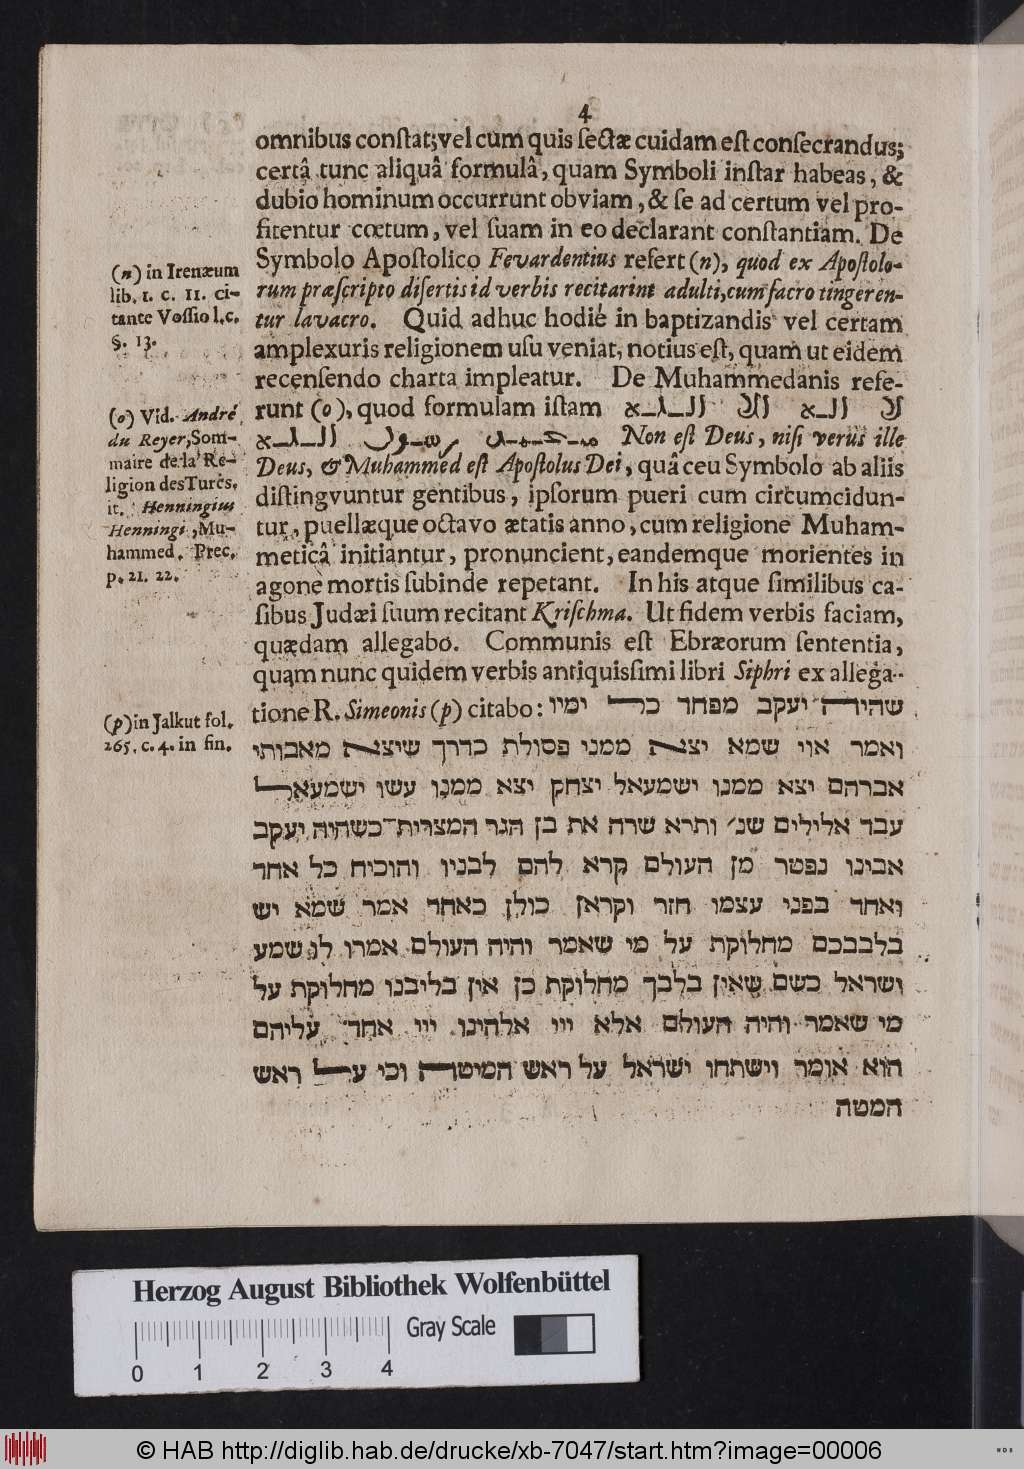 4
omnibus constat; vel cum quis sectæ cuidam est consecrandus;
certâ tunc aliquâ formulâ, quam Symboli instar habeas, &
dubio hominum occurrunt obviam, & se ad certum vel pro-
fitentur cœtum, vel suam in eo declarant constantiam. De
Symbolo Apostolico Fevardentius refert (n), quod ex Apostolo-
rum præscripto disertis id verbis recitarint adulti, cum sacro tingeren-
tur lavacro. Quid adhuc hodie in baptizandis vel certam
amplexuris religionem usu veniat, notius est, quam ut eidem
recensendo charta impleatur. De Muhammedanis refe-
runt (o), quod formulam istam لا اله الا الله
محمد رسول الله Non est Deus, nisi verus ille
Deus, & Muhammed est Apostolus Dei, quâ ceu Symbolo ab aliis
distingvuntur gentibus, ipsorum pueri cum circumcidun-
tur, puellæque octavo ætatis anno, cum religione Muham-
meticâ initiantur, pronuncient, eandemque morientes in
agone mortis subinde repetant. In his atque similibus ca-
sibus Judæi suum recitant Krischma. Ut fidem verbis faciam,
quædam allegabo. Communis est Ebræorum sententia,
quam nunc quidem verbis antiquissimi libri Siphri ex allega-
tione R. Simeonis (p) citabo: שהיה יעקב מפחד כל ימיו
ואמר אוי שמא יצא ממני פסולת כדרך שיצא מאבותי
אברהם יצא ממנו ישמעאל יצחק יצא ממנו עשו ישמעאל
עבד אלילים שנ׳ ותרא שרה את בן הגר המצרית כשהיה יעקב
אבינו נפטר מן העולם קרא להם לבניו והוכיח כל אחד
ואחד בפני עצמו חזר וקראן כולן כאחד אמר שמא יש
בלבבכם מחלוקת על מי שאמר והיה העולם אמרו לו שמע
ישראל כשם שאין בלבך מחלוקת כן אין בליבנו מחלוקת על
מי שאמר והיה העולם אלא ייי אלהינו ייי אחד עליהם
הוא אומר וישתחו ישראל על ראש המיטה וכי על ראש
המטה
(n) in Irenæum
lib. 1. c. 11. ci-
tante Vossio l. c.
§. 13.
(o) Vid. André
du Reyer, Som-
maire de la Re-
ligion des Turcs.
it. Henningius
Henningi, Mu-
hammed. Prec.
p. 21. 22.
(p) in Jalkut fol.
265. c. 4. in fin.
Herzog August Bibliothek Wolfenbüttel
Gray Scale
0 1 2 3 4
© HAB http://diglib.hab.de/drucke/xb-7047/start.htm?image=00006